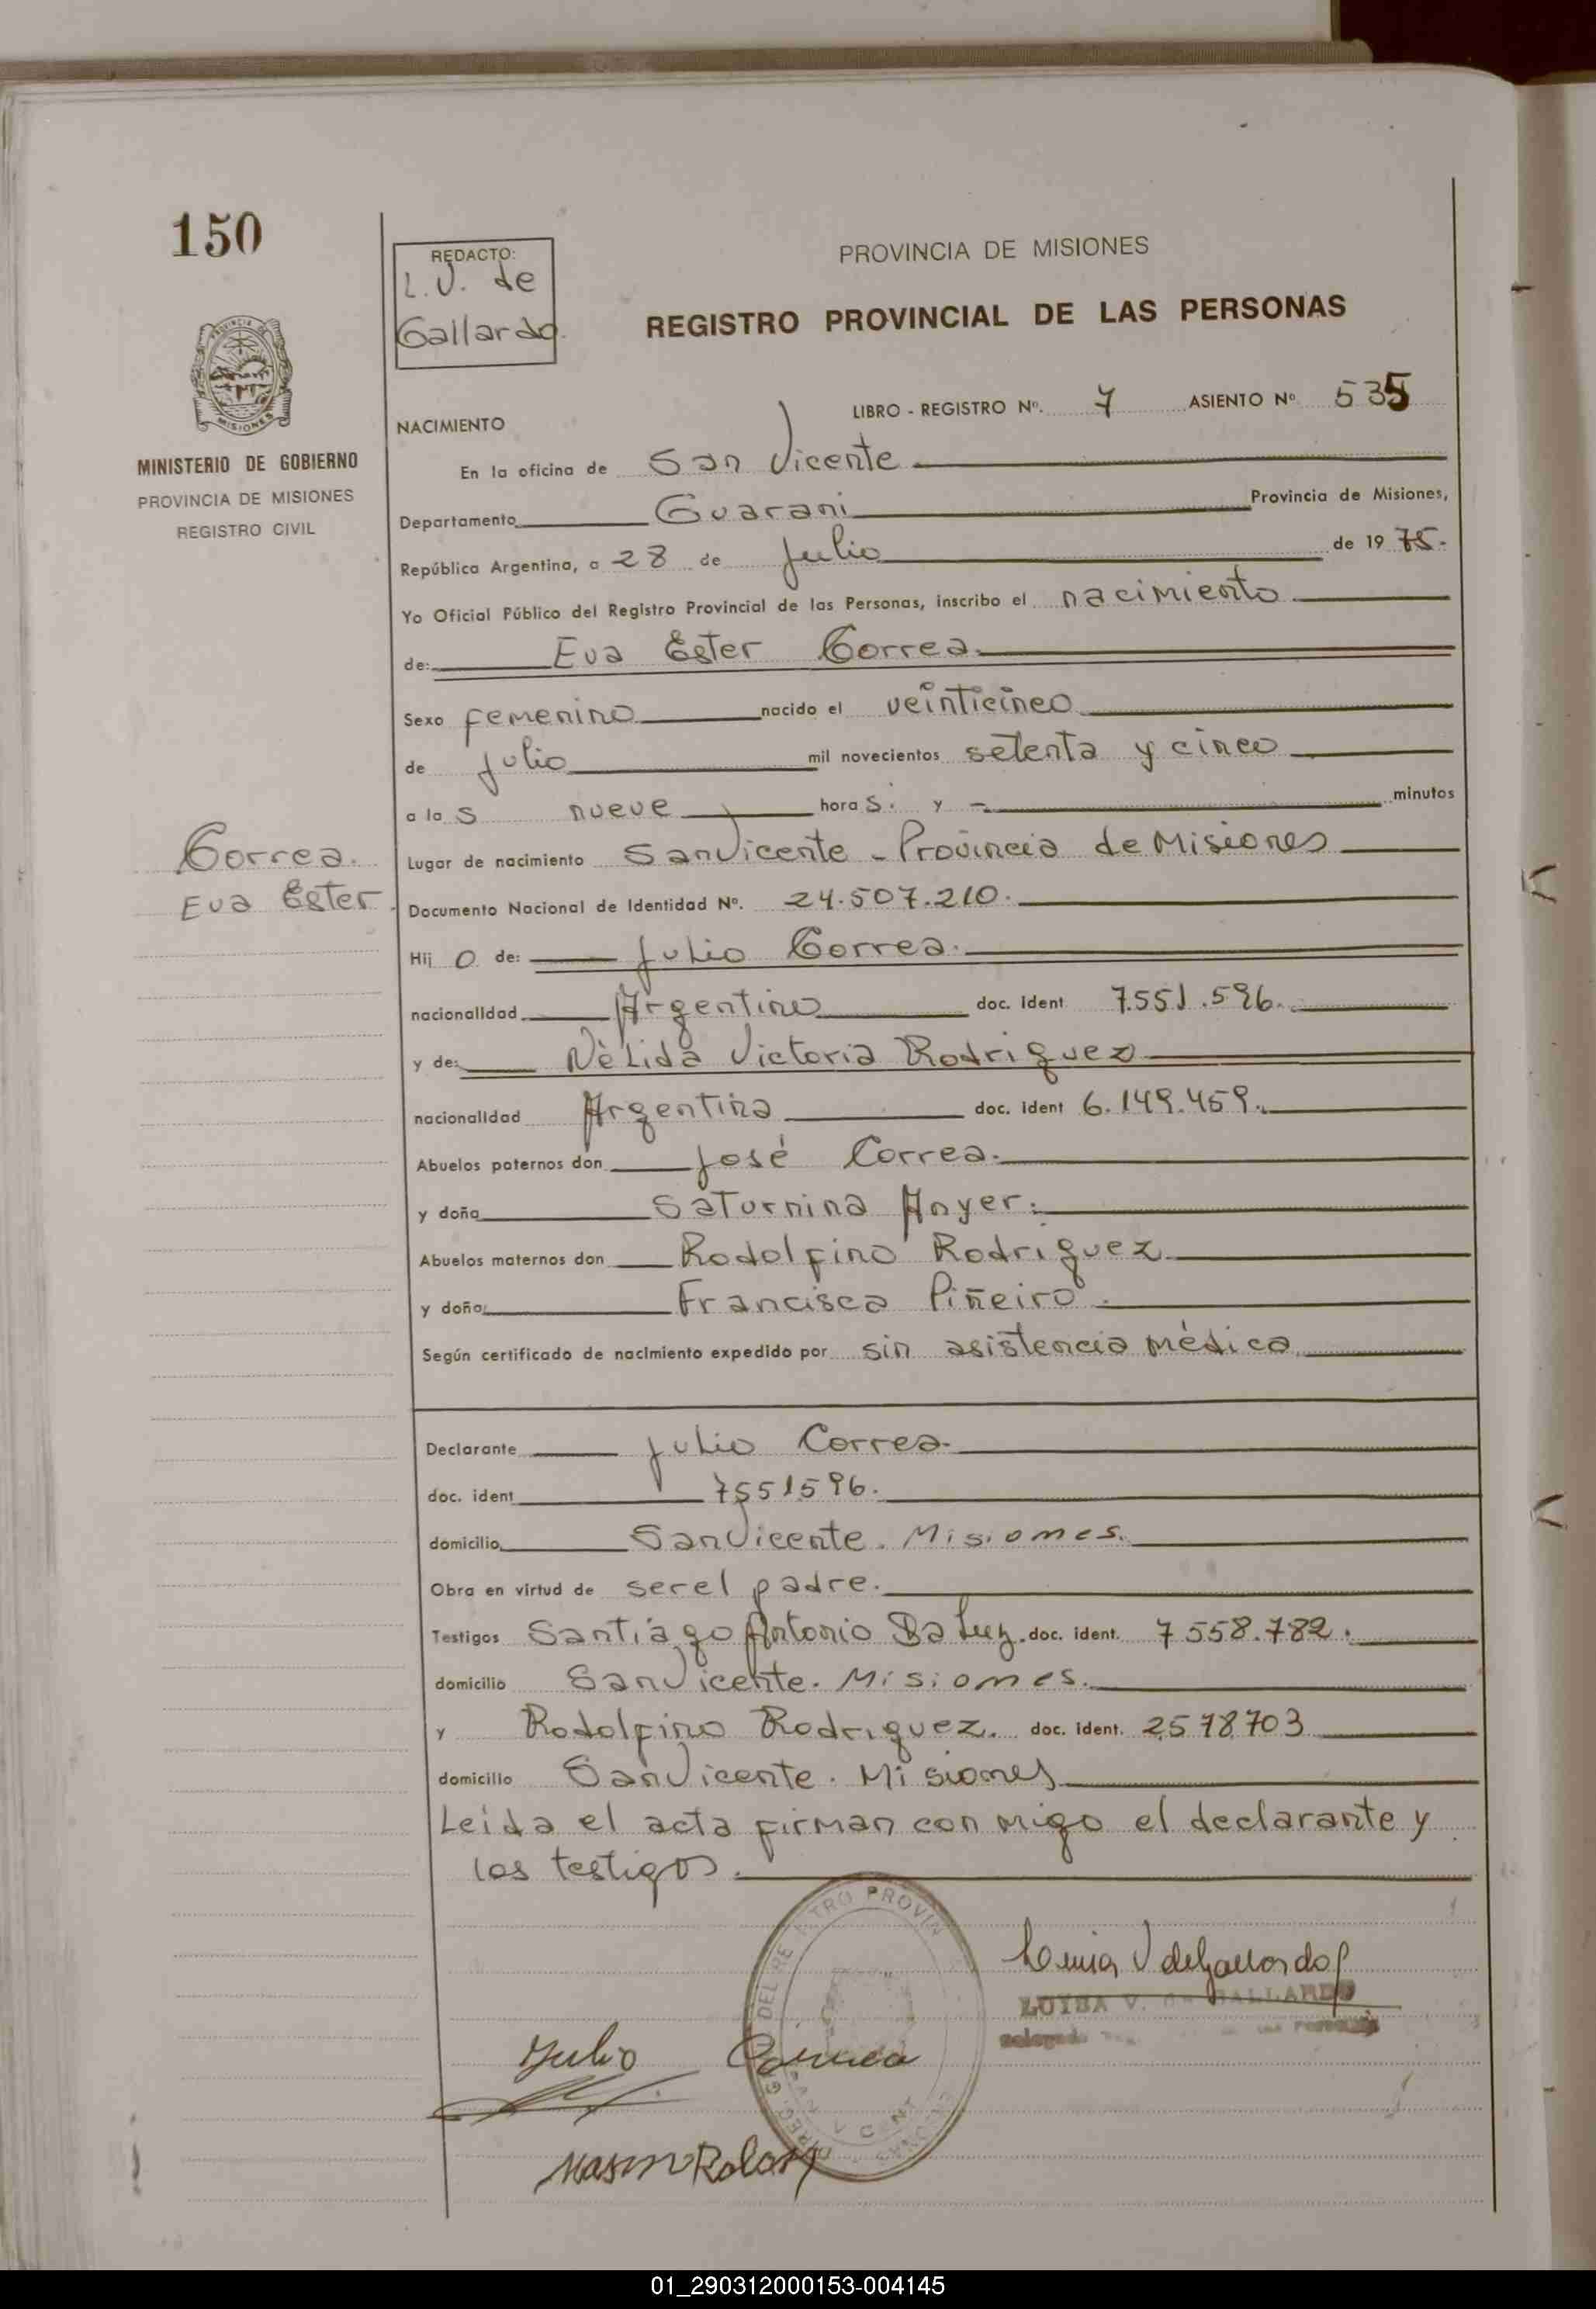 150
REDACTO:
L.V. de
Gallardo.
PROVINCIA DE MISIONES
REGISTRO PROVINCIAL DE LAS PERSONAS
PROVINCIA DE
MISIONES
MINISTERIO DE GOBIERNO
PROVINCIA DE MISIONES
REGISTRO CIVIL
LIBRO - REGISTRO Nº. 7 ASIENTO Nº 535
NACIMIENTO
En la oficina de San Vicente
Departamento Guarani Provincia de Misiones,
República Argentina, a 28 de Julio de 19 75.
Yo Oficial Público del Registro Provincial de las Personas, inscribo el nacimiento
de: Eva Ester Correa.
Sexo femenino nacido el veinticinco
de julio mil novecientos setenta y cinco
a la s nueve hora s. y - minutos
Correa.
Eva Ester
Lugar de nacimiento San Vicente - Provincia de Misiones
Documento Nacional de Identidad Nº. 24.507.210.
Hij o de: Julio Correa.
nacionalidad Argentino doc. ident 7.551.596.
y de: Nèlida Victoria Rodriguez
nacionalidad Argentina doc. ident 6.149.459.
Abuelos paternos don José Correa.
y doña Saturnina Anyer.
Abuelos maternos don Rodolfino Rodriguez
y doña Francisca Piñeiro.
Según certificado de nacimiento expedido por sin asistencia médica
Declarante Julio Correa.
doc. ident 7551596.
domicilio San Vicente. Misiones.
Obra en virtud de ser el padre.
Testigos Santiago Antonio Da Luz. doc. ident. 7558.782.
domicilio San Vicente. Misiones.
y Rodolfino Rodriguez. doc. ident. 2578703
domicilio San Vicente. Misiones
Leida el acta firman con migo el declarante y
los testigos.
Luisa V de Gallardo
LUISA V. de GALLARDO
Julio Correa
01_290312000153-004145